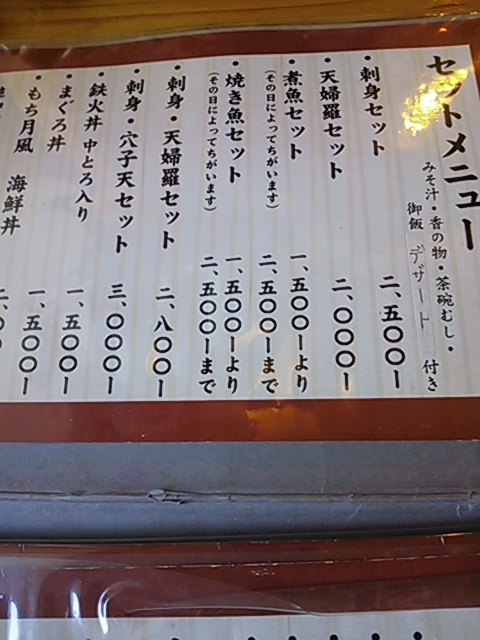 セットメニュー
みそ汁・香の物・茶碗むし・
御飯 デザート 付き
・刺身セット 二、五〇〇ー
・天婦羅セット 二、〇〇〇ー
・煮魚セット 一、五〇〇ーより
(その日によってちがいます) 二、五〇〇ーまで
・焼き魚セット 一、五〇〇ーより
(その日によってちがいます) 二、五〇〇ーまで
・刺身・天婦羅セット 二、八〇〇ー
・刺身・穴子天セット 三、〇〇〇ー
・鉄火丼 中とろ入り 一、五〇〇ー
・まぐろ丼 一、五〇〇ー
・もち月風 海鮮丼